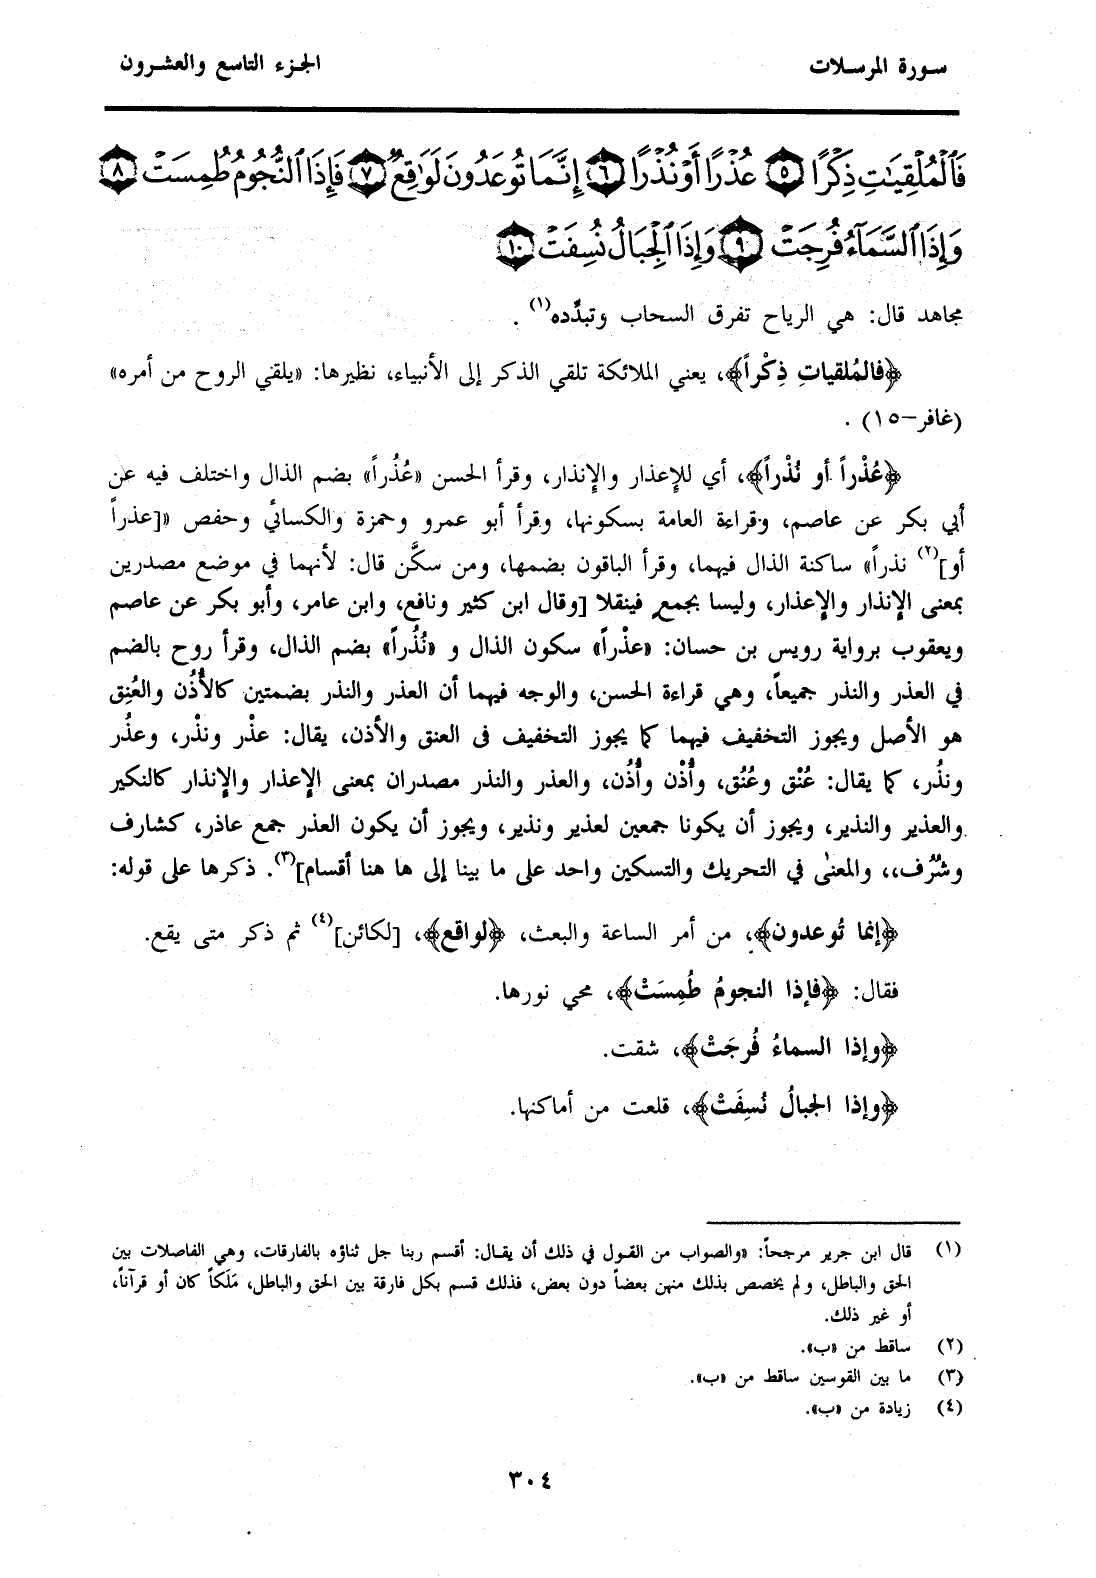 سورة المرسلات
الجزء التاسع والعشرون
فَٱلْمُلْقِيَٰتِ ذِكْرًا ٥ عُذْرًا أَوْ نُذْرًا ٦ إِنَّمَا تُوعَدُونَ لَوَٰقِعٌ ٧ فَإِذَا ٱلنُّجُومُ طُمِسَتْ ٨
وَإِذَا ٱلسَّمَآءُ فُرِجَتْ ٩ وَإِذَا ٱلْجِبَالُ نُسِفَتْ ١٠
مجاهد قال: هي الرياح تفرق السحاب وتبدِّده(١) .
﴿فالمُلقياتِ ذِكْراً﴾، يعني الملائكة تلقي الذكر إلى الأنبياء، نظيرها: «يلقي الروح من أمره»
(غافر–١٥) .
﴿عُذْراً أو نُذْراً﴾، أي للإعذار والإنذار، وقرأ الحسن «عُذُراً» بضم الذال واختلف فيه عن
أبي بكر عن عاصم، وقراءة العامة بسكونها، وقرأ أبو عمرو وحمزة والكسائي وحفص «[عذراً
أو](٢) نذراً» ساكنة الذال فيهما، وقرأ الباقون بضمها، ومن سكَّن قال: لأنهما في موضع مصدرين
بمعنى الإنذار والإعذار، وليسا بجمع فينقلا [وقال ابن كثير ونافع، وابن عامر، وأبو بكر عن عاصم
ويعقوب برواية رويس بن حسان: «عذْراً» سكون الذال و «نُذُراً» بضم الذال، وقرأ روح بالضم
في العذر والنذر جميعاً، وهي قراءة الحسن، والوجه فيهما أن العذر والنذر بضمتين كالأُذُن والعُنِق
هو الأصل ويجوز التخفيف فيهما كما يجوز التخفيف فى العنق والأذن، يقال: عذْر ونذْر، وعذُر
ونذُر، كما يقال: عُنْق وعُنُق، وأُذْن وأُذُن، والعذر والنذر مصدران بمعنى الإعذار والإنذار كالنكير
والعذير والنذير، ويجوز أن يكونا جمعين لعذير ونذير، ويجوز أن يكون العذر جمع عاذر، كشارف
وشُرُف،، والمعنىٰ في التحريك والتسكين واحد على ما بينا إلى ها هنا أقسام](٣). ذكرها على قوله:
﴿إنما تُوعدون﴾، من أمر الساعة والبعث، ﴿لواقع﴾، [لكائن](٤) ثم ذكر متى يقع.
فقال: ﴿فإذا النجومُ طُمِسَتْ﴾، محي نورها.
﴿وإذا السماءُ فُرِجَتْ﴾، شقت.
﴿وإذا الجبالُ نُسِفَتْ﴾، قلعت من أماكنها.
(١) قال ابن جرير مرجحاً: «والصواب من القول في ذلك أن يقال: أقسم ربنا جل ثناؤه بالفارقات، وهي الفاصلات بين
الحق والباطل، ولم يخصص بذلك منهن بعضاً دون بعض، فذلك قسم بكل فارقة بين الحق والباطل، مَلَكاً كان أو قرآناً،
أو غير ذلك.
(٢) ساقط من «ب».
(٣) ما بين القوسين ساقط من «ب».
(٤) زيادة من «ب».
٣٠٤